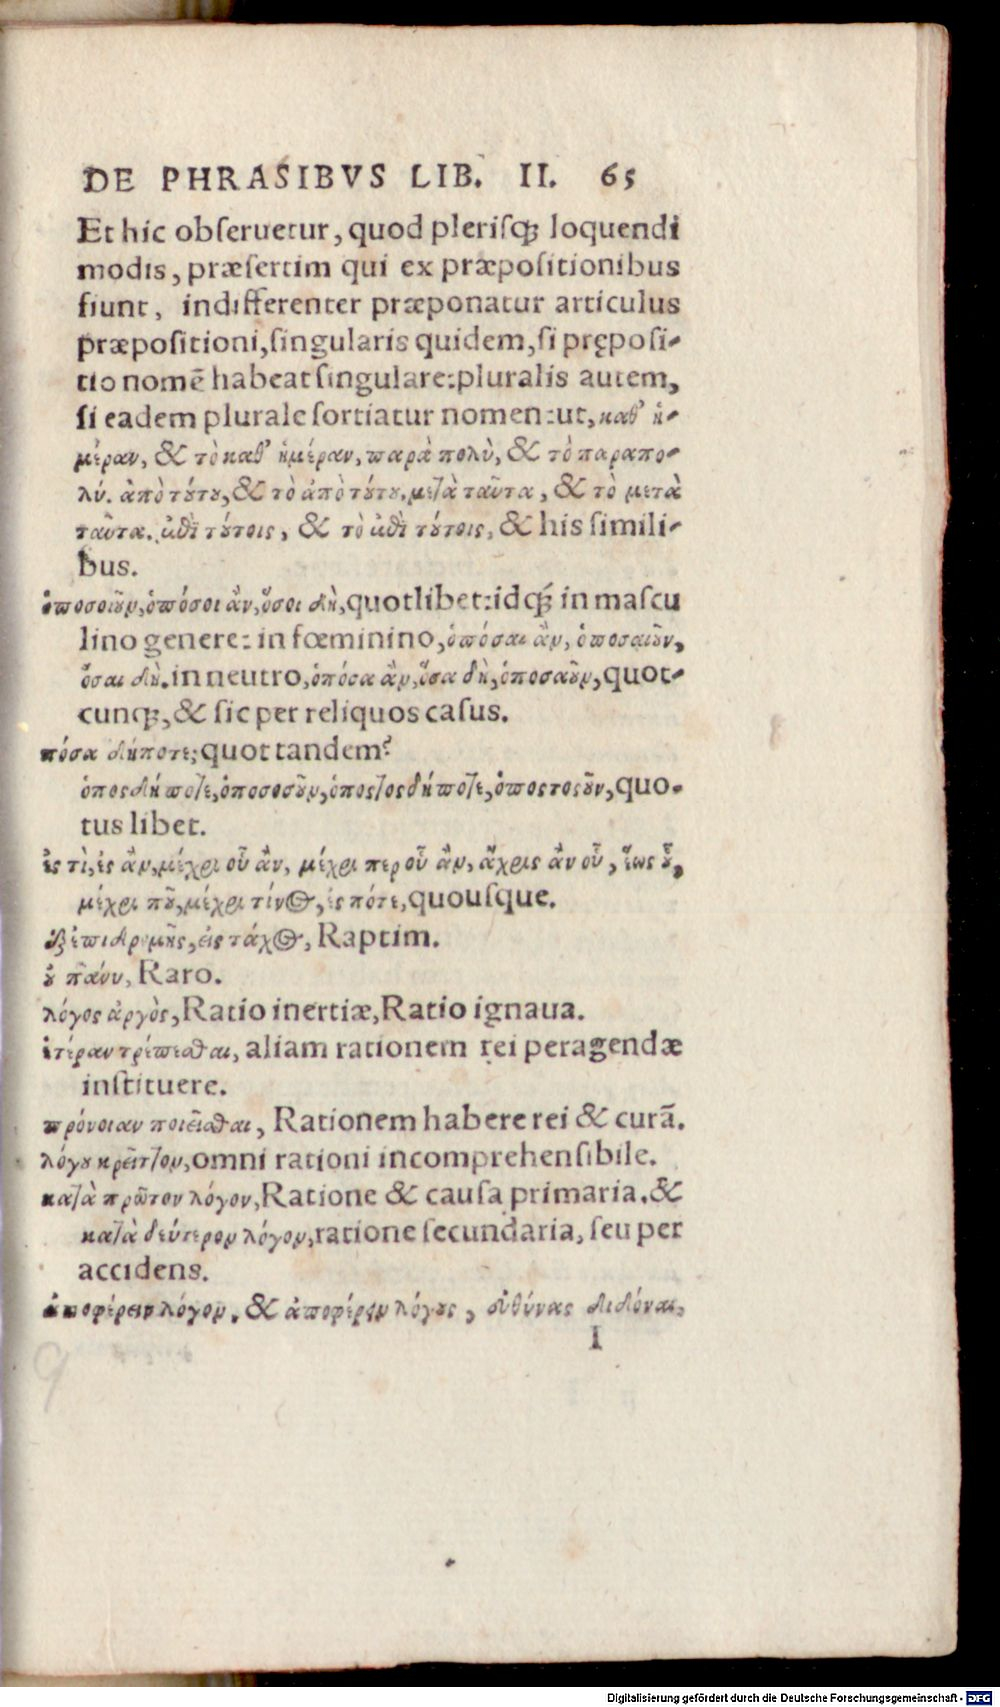 DE PHRASIBVS LIB. II. 65
Et hic obseruetur, quod plerisq; loquendi
modis, præsertim qui ex præpositionibus
fiunt, indifferenter præponatur articulus
præpositioni, singularis quidem, si pręposi-
tio nomē habeat singulare: pluralis autem,
si eadem plurale sortiatur nomen: ut, καθ' ἡ-
μέραν, & τὸ καθ' ἡμέραν, παρὰ πολὺ, & τὸ παραπο-
λύ. ἀπὸ τύτυ, & τὸ ἀπὸ τύτυ. μετὰ ταῦτα, & τὸ μετὰ
ταῦτα. ἐπὶ τύτοις, & τὸ ἐπὶ τύτοις, & his simili-
bus.
ὁποσοιοῦν, ὁπόσοι ἂν, ὅσοι δὴ, quotlibet: idq́; in mascu
lino genere: in fœminino, ὁπόσαι ἂν, ὁποσαιοῦν,
ὅσαι δὴ. in neutro, ὁπόσα ἂν, ὅσα δὴ, ὁποσαοῦν, quot-
cunq;, & sic per reliquos casus.
πόσα δήποτε; quot tandem?
ὁποσδήποτε, ὁποσοσοῦν, ὁποστοσδήποτε, ὁποστοσοῦν, quo-
tus libet.
ἐς τὶ, ἐς ἂν, μέχρι οὗ ἂν, μέχρι περ οὗ ἂν, ἄχρις ἂν οὗ, ἕως οὗ,
μέχρι ποῦ, μέχρι τίνος, ἐς πότε, quousque.
ἐξ ἐπιδρομῆς, εἰς τάχος, Raptim.
οὐ πάνυ, Raro.
λόγος ἀργὸς, Ratio inertiæ, Ratio ignaua.
ἑτέραν τρέπεσθαι, aliam rationem rei peragendæ
instituere.
πρόνοιαν ποιεῖσθαι, Rationem habere rei & curā.
λόγου κρεῖττον, omni rationi incomprehensibile.
κατὰ πρῶτον λόγον, Ratione & causa primaria. &
κατὰ δεύτερον λόγον, ratione secundaria, seu per
accidens.
ἀποφέρειν λόγον, & ἀποφέρειν λόγους, εὐθύνας διδόναι,
I
9
Digitalisierung gefördert durch die Deutsche Forschungsgemeinschaft - DFG